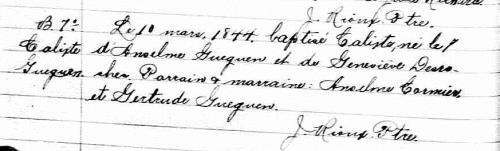 J. Rioux Ptre.
B. 7e Le 10 mars, 1844, baptisé Caliste, né le 7
Caliste d'Anselme Gueguen et de Geneviève Desro-
Gueguen cher. Parrain & marraine: Anselme Cormier
et Gertrude Gueguen.
J. Rioux Ptre.